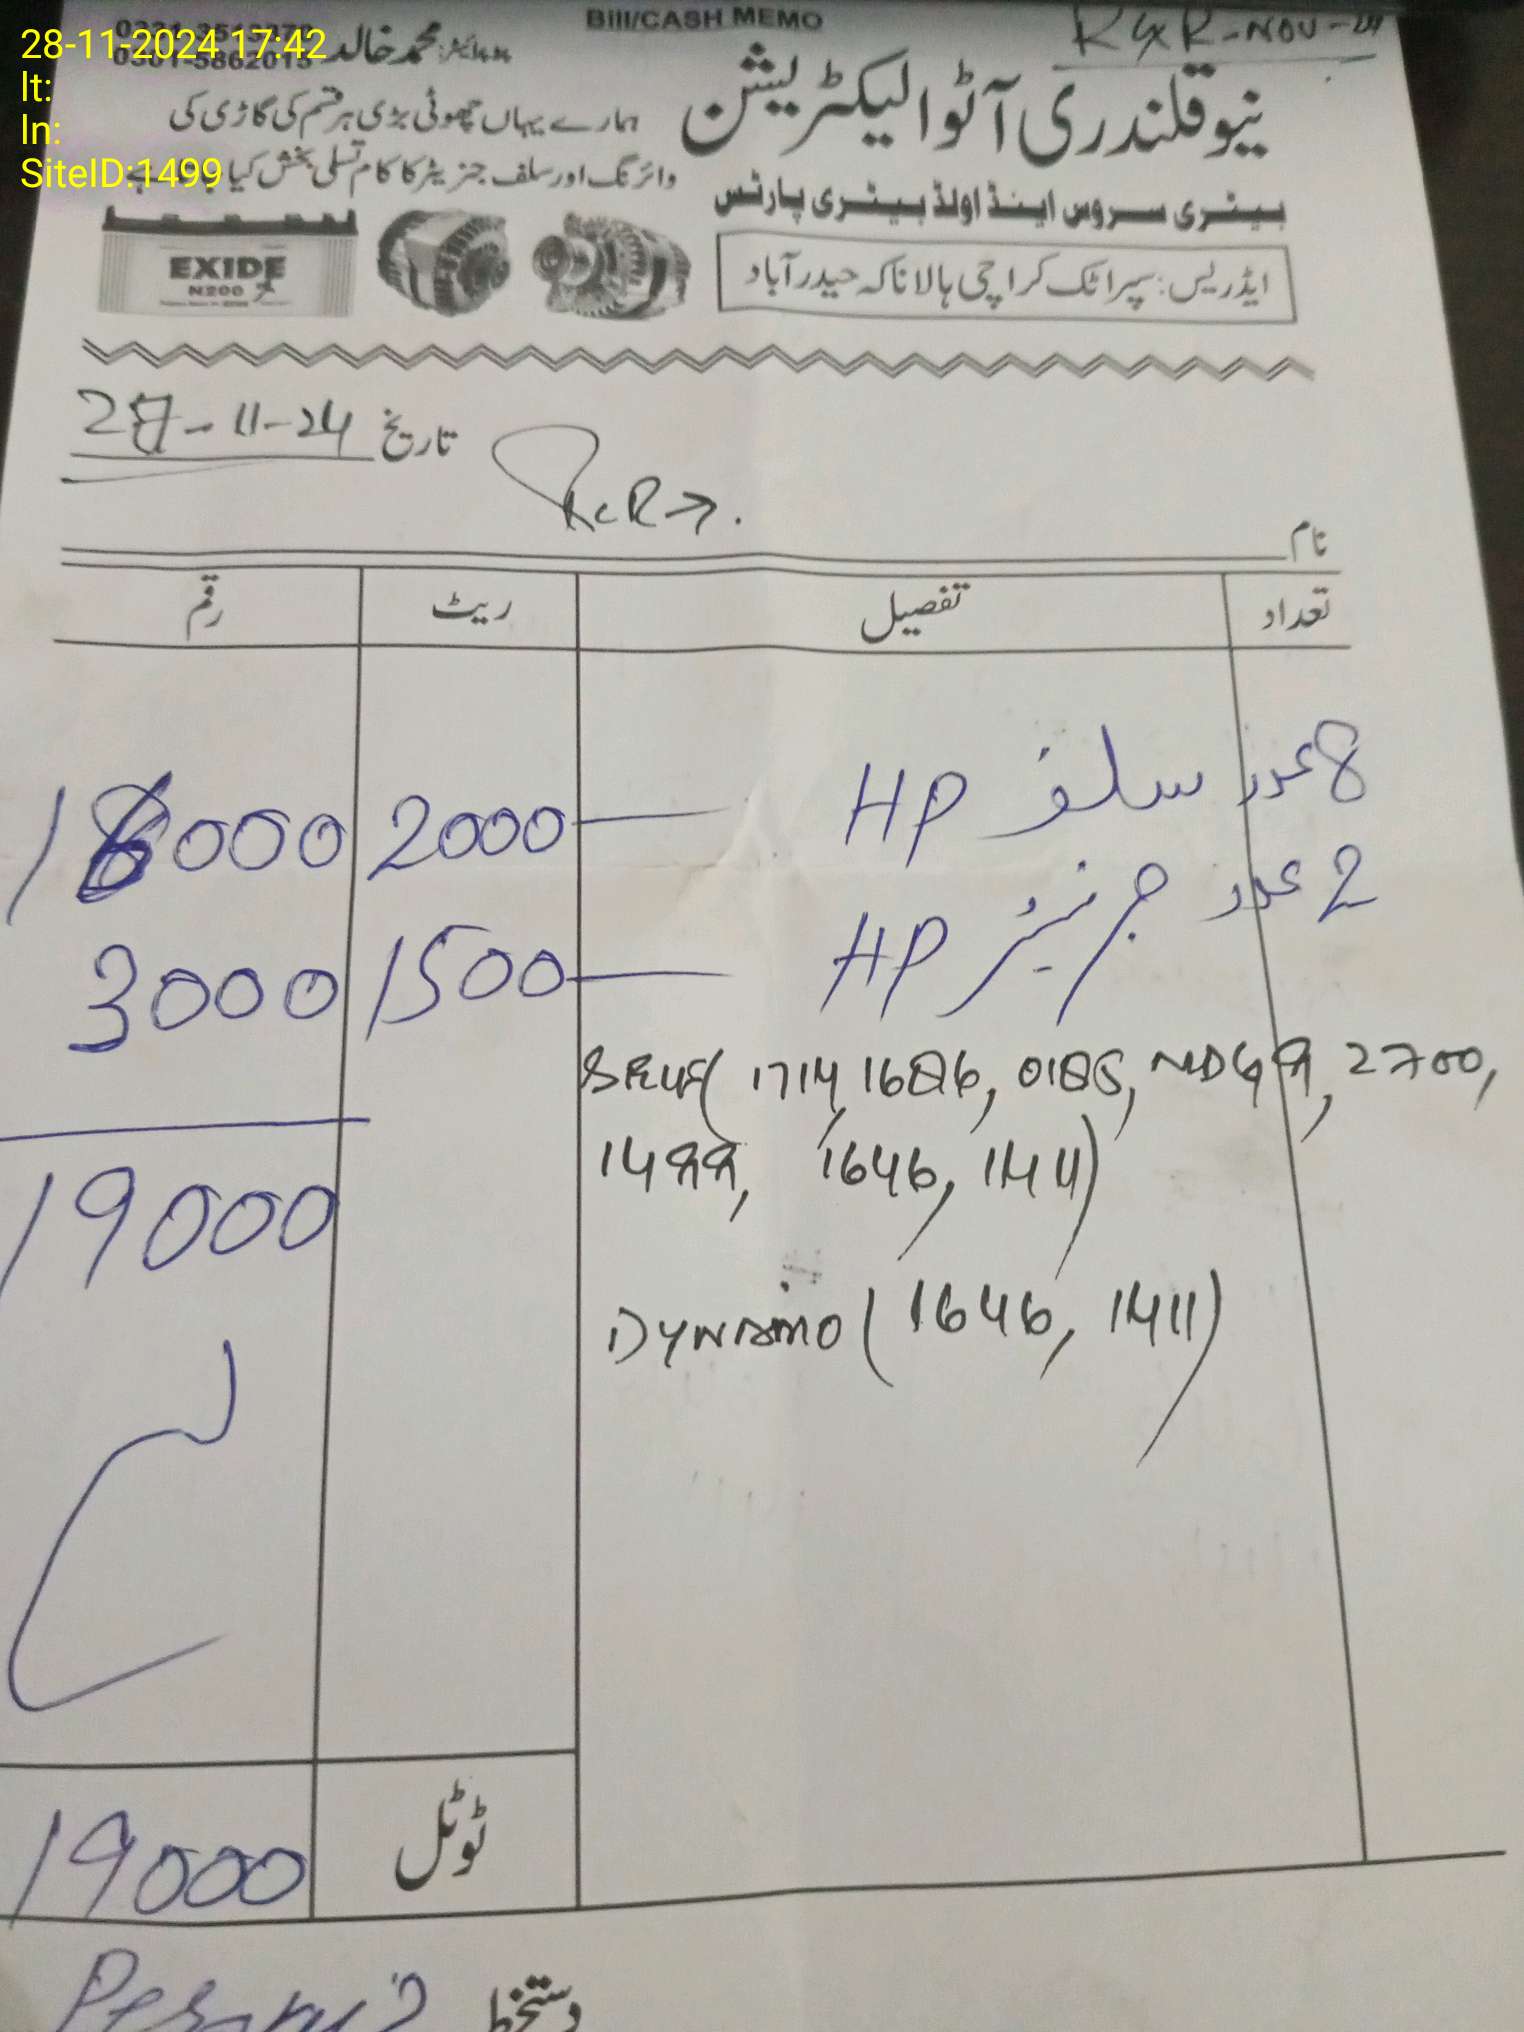 28-11-2024 17:42
lt:
ln:
SiteID:1499
Bill/CASH MEMO
0301-5862015
محمد خالد
نیو قلندری آٹو الیکٹریشن
ہمارے یہاں چھوٹی بڑی ہر قسم کی گاڑی کی
وائرنگ اور سلف جنریٹر کا کام تسلی بخش کیا
بیٹری سروس اینڈ اولڈ بیٹری پارٹس
EXIDE
N200
ایڈریس: سپرائک کراچی ہالا ناکہ حیدرآباد
-11-24 تاریخ
نام
تعداد تفصیل ریٹ رقم
8 عدد سلف HP 2000 16000
2 عدد جرنیٹر HP 1500 3000
SELF( 1714, 1686, 0185, 2700,
1499, 1646, 1411)
19000
DYNAMO (1646, 1411)
ٹوٹل 19000
دستخط